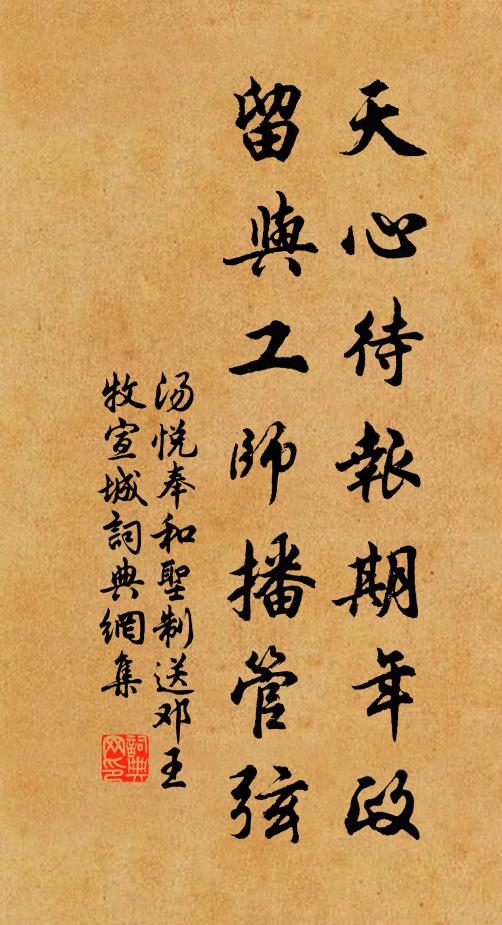 天心待報期年政
留與工師播管弦
汤悦奉和聖制送邓王
牧宣城詞典網集
詞典网印